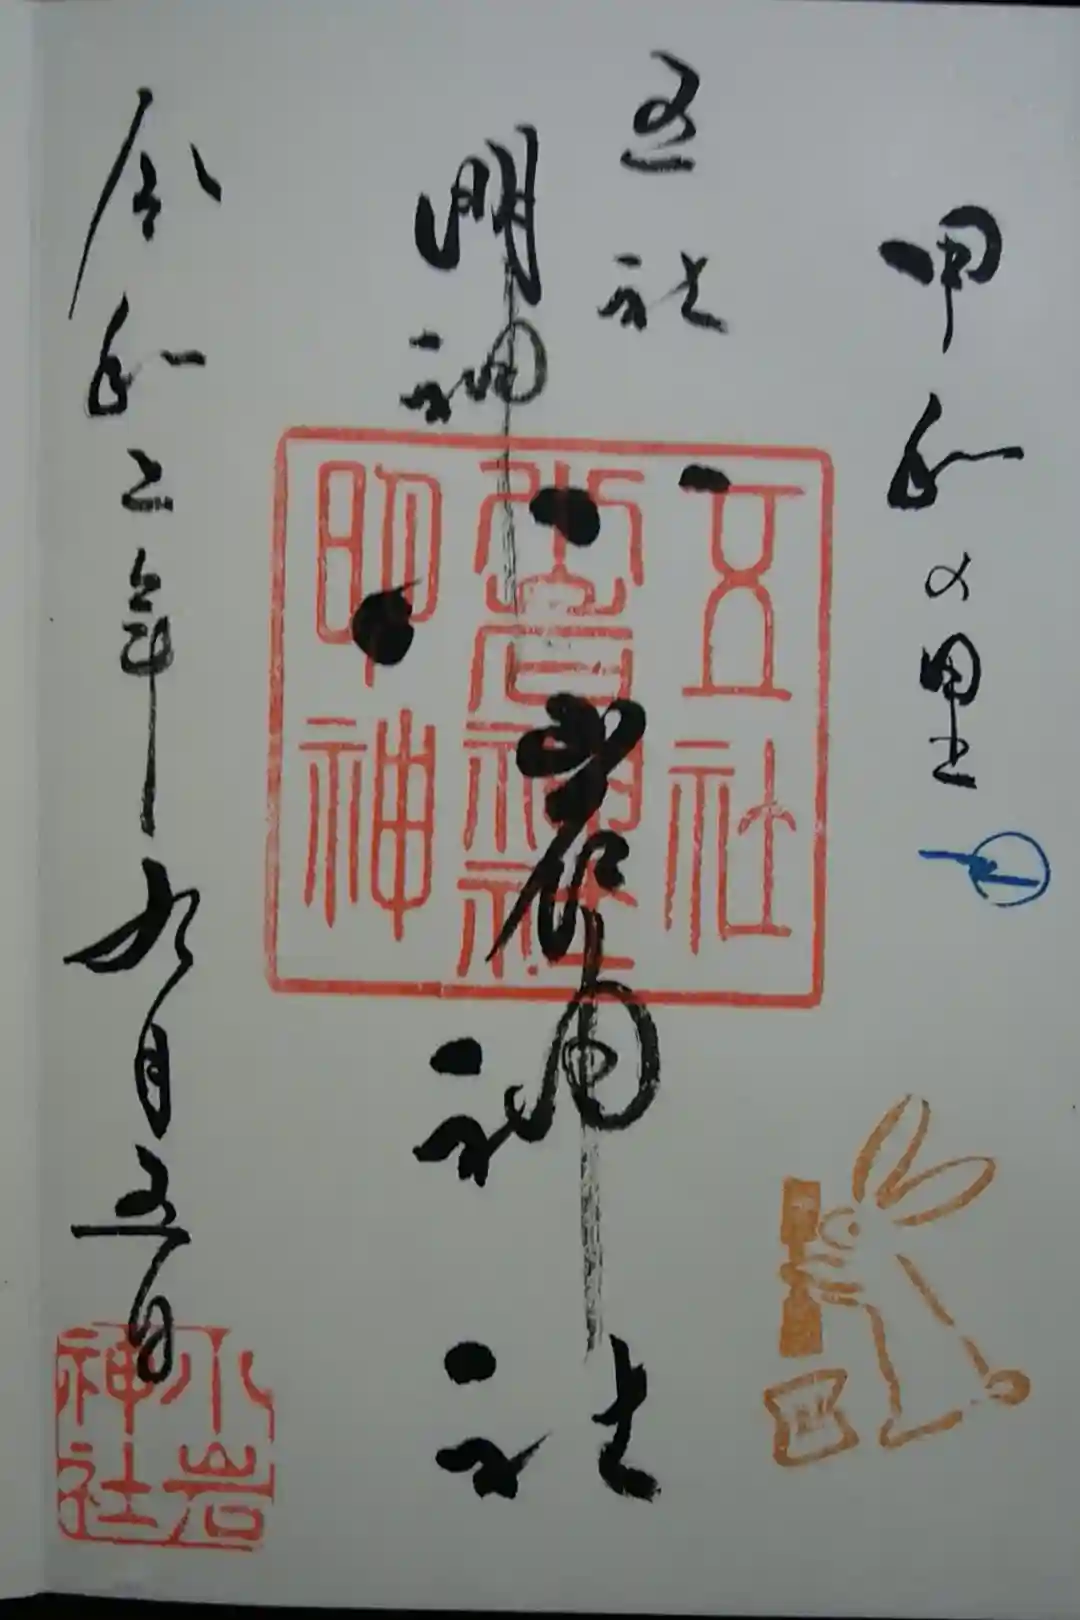 甲和の里
五社
明神
小岩神社
令和二年九月五日
五社
小岩神社
明神
小岩
神社